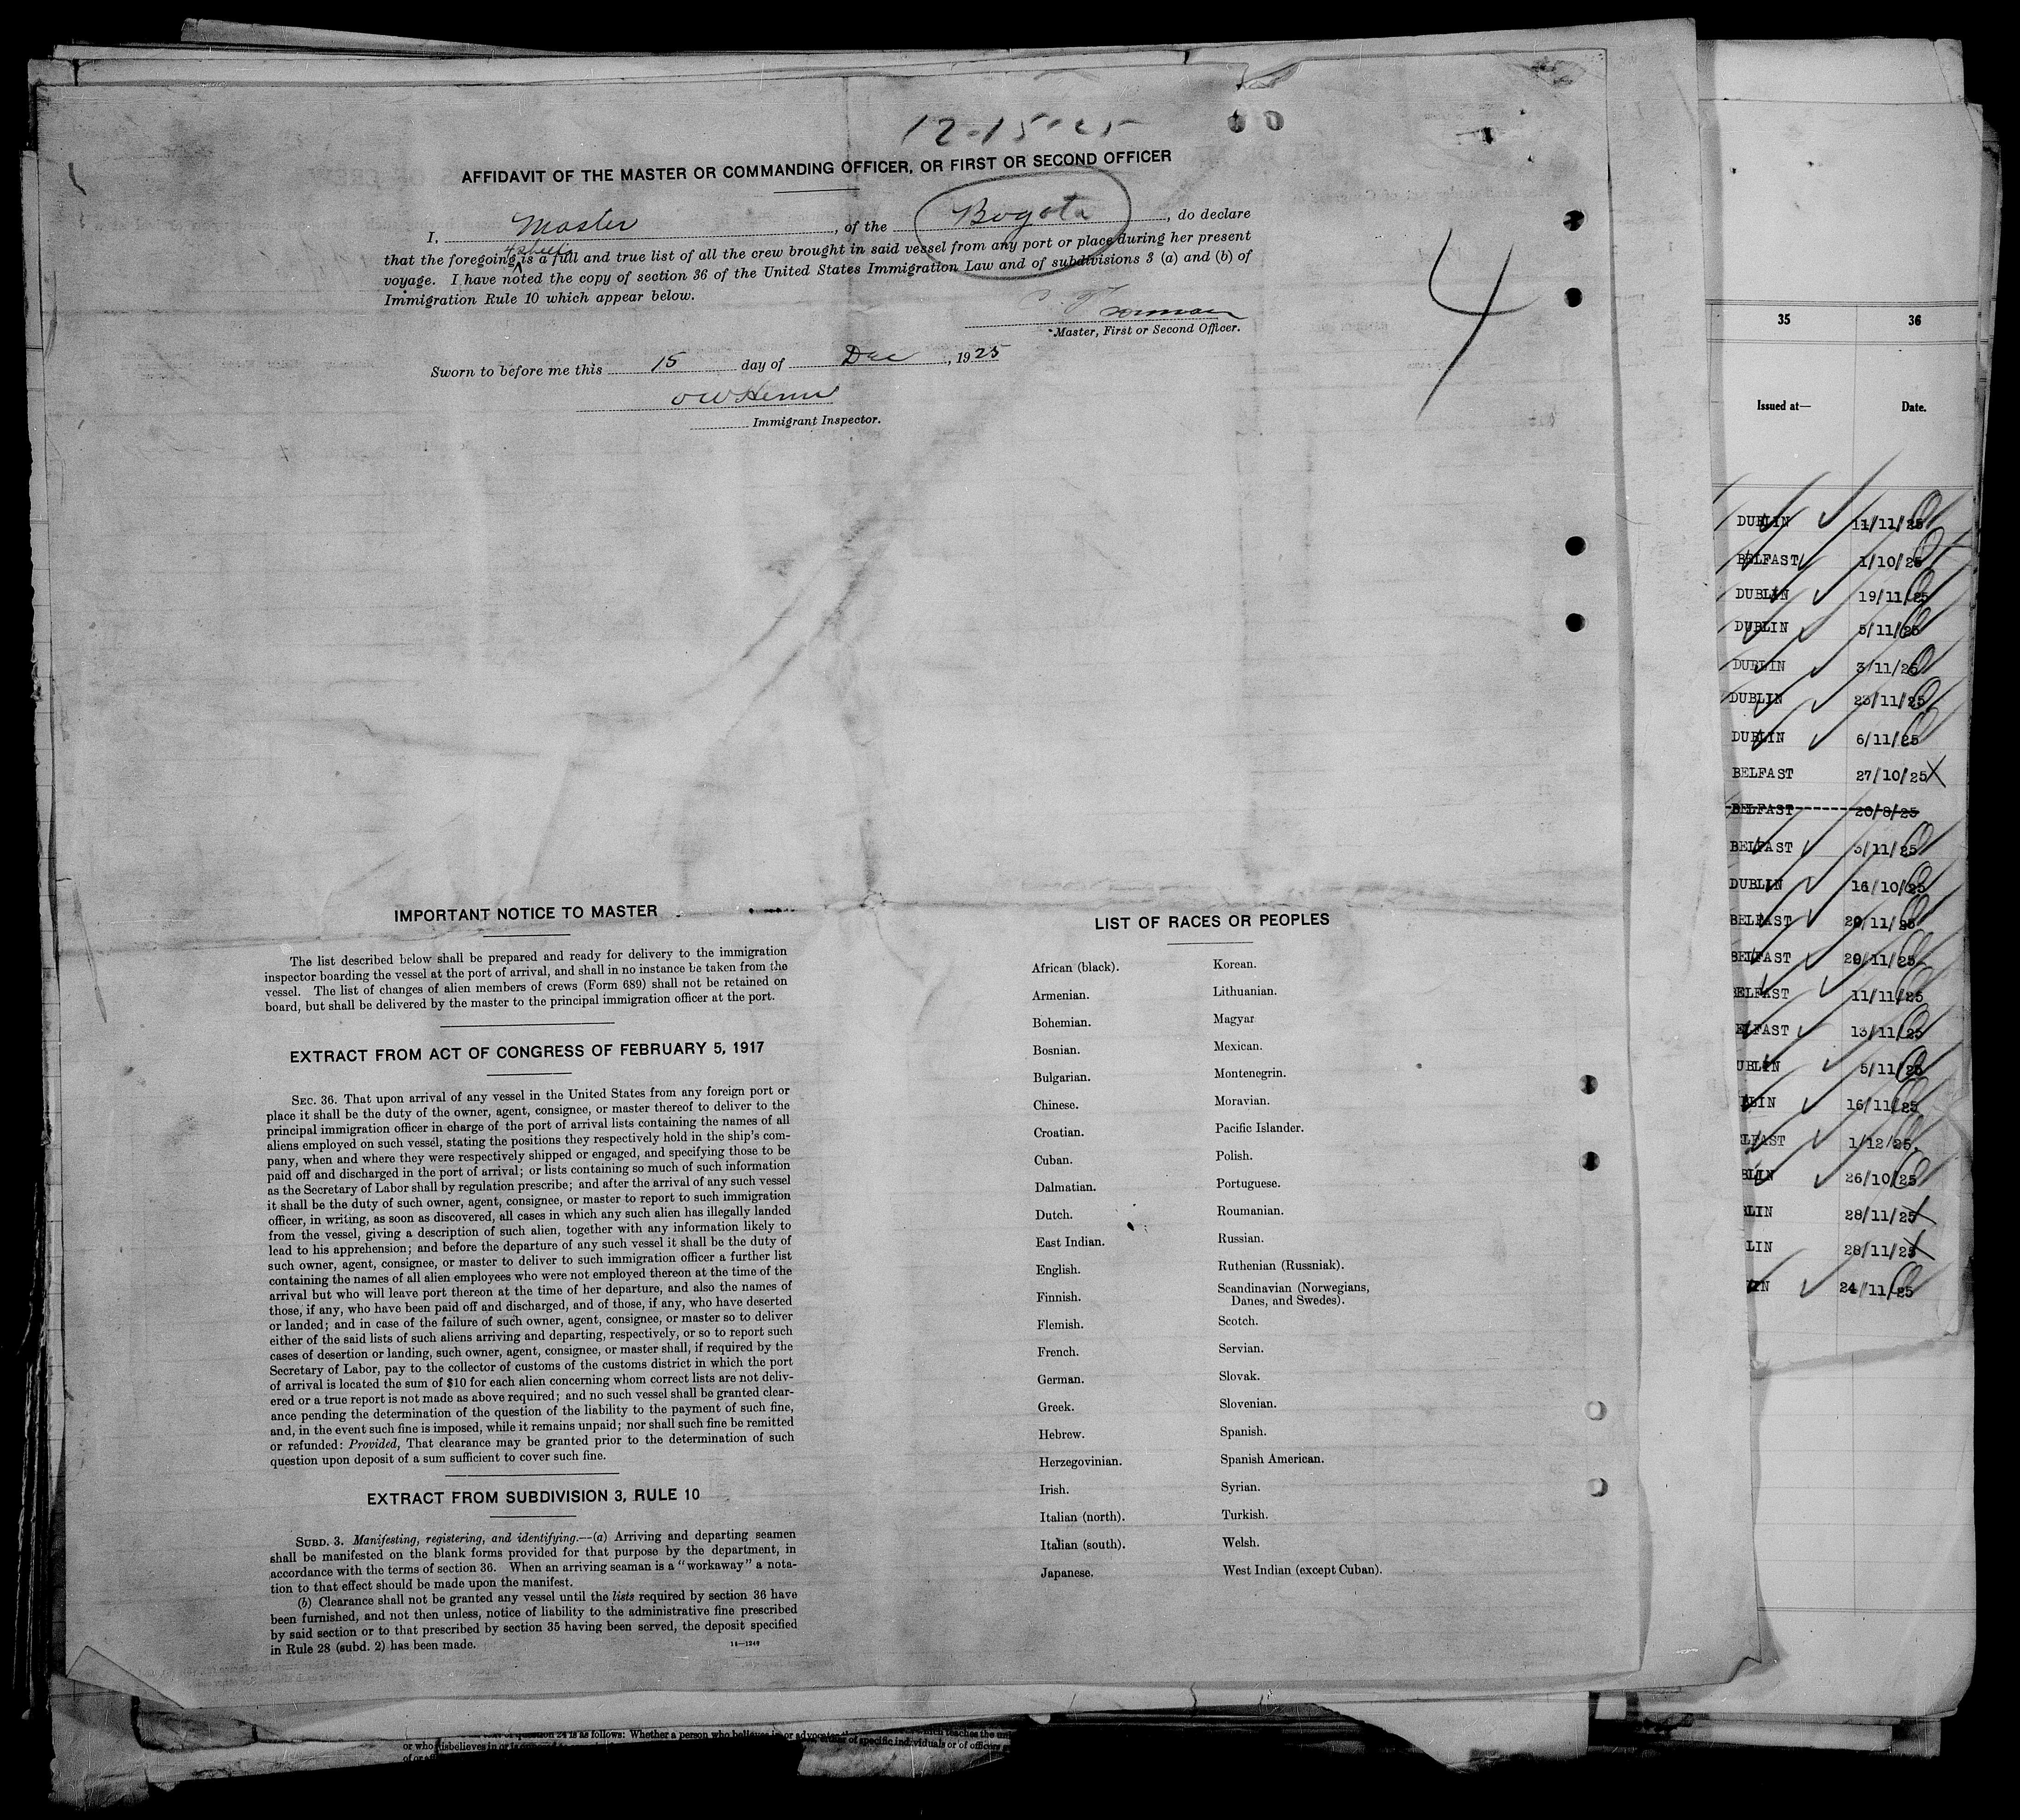 12-15-25
AFFIDAVIT OF THE MASTER OR COMMANDING OFFICER, OR FIRST OR SECOND OFFICER
I, Master, of the Bogota, do declare
4 sheets
that the foregoing is a full and true list of all the crew brought in said vessel from any port or place during her present
voyage. I have noted the copy of section 36 of the United States Immigration Law and of subdivisions 3 (a) and (b) of
Immigration Rule 10 which appear below.
Master, First or Second Officer.
4
Sworn to before me this 15 day of Dec, 1925
Immigrant Inspector.
IMPORTANT NOTICE TO MASTER
The list described below shall be prepared and ready for delivery to the immigration
inspector boarding the vessel at the port of arrival, and shall in no instance be taken from the
vessel. The list of changes of alien members of crews (Form 689) shall not be retained on
board, but shall be delivered by the master to the principal immigration officer at the port.
EXTRACT FROM ACT OF CONGRESS OF FEBRUARY 5, 1917
SEC. 36. That upon arrival of any vessel in the United States from any foreign port or
place it shall be the duty of the owner, agent, consignee, or master thereof to deliver to the
principal immigration officer in charge of the port of arrival lists containing the names of all
aliens employed on such vessel, stating the positions they respectively hold in the ship's com-
pany, when and where they were respectively shipped or engaged, and specifying those to be
paid off and discharged in the port of arrival; or lists containing so much of such information
as the Secretary of Labor shall by regulation prescribe; and after the arrival of any such vessel
it shall be the duty of such owner, agent, consignee, or master to report to such immigration
officer, in writing, as soon as discovered, all cases in which any such alien has illegally landed
from the vessel, giving a description of such alien, together with any information likely to
lead to his apprehension; and before the departure of any such vessel it shall be the duty of
such owner, agent, consignee, or master to deliver to such immigration officer a further list
containing the names of all alien employees who were not employed thereon at the time of the
arrival but who will leave port thereon at the time of her departure, and also the names of
those, if any, who have been paid off and discharged, and of those, if any, who have deserted
or landed; and in case of the failure of such owner, agent, consignee, or master so to deliver
either of the said lists of such aliens arriving and departing, respectively, or so to report such
cases of desertion or landing, such owner, agent, consignee, or master shall, if required by the
Secretary of Labor, pay to the collector of customs of the customs district in which the port
of arrival is located the sum of $10 for each alien concerning whom correct lists are not deliv-
ered or a true report is not made as above required; and no such vessel shall be granted clear-
ance pending the determination of the question of the liability to the payment of such fine,
and, in the event such fine is imposed, while it remains unpaid; nor shall such fine be remitted
or refunded: Provided, That clearance may be granted prior to the determination of such
question upon deposit of a sum sufficient to cover such fine.
EXTRACT FROM SUBDIVISION 3, RULE 10
SUBD. 3. Manifesting, registering, and identifying.—(a) Arriving and departing seamen
shall be manifested on the blank forms provided for that purpose by the department, in
accordance with the terms of section 36. When an arriving seaman is a "workaway" a nota-
tion to that effect should be made upon the manifest.
(b) Clearance shall not be granted any vessel until the lists required by section 36 have
been furnished, and not then unless, notice of liability to the administrative fine prescribed
by said section or to that prescribed by section 35 having been served, the deposit specified
in Rule 28 (subd. 2) has been made.
14—1240
LIST OF RACES OR PEOPLES
African (black).
Armenian.
Bohemian.
Bosnian.
Bulgarian.
Chinese.
Croatian.
Cuban.
Dalmatian.
Dutch.
East Indian.
English.
Finnish.
Flemish.
French.
German.
Greek.
Hebrew.
Herzegovinian.
Irish.
Italian (north).
Italian (south).
Japanese.
Korean.
Lithuanian.
Magyar
Mexican.
Montenegrin.
Moravian.
Pacific Islander.
Polish.
Portuguese.
Roumanian.
Russian.
Ruthenian (Russniak).
Scandinavian (Norwegians,
Danes, and Swedes).
Scotch.
Servian.
Slovak.
Slovenian.
Spanish.
Spanish American.
Syrian.
Turkish.
Welsh.
West Indian (except Cuban).
35 36
Issued at— Date.
DUBLIN 11/11/25
BELFAST 1/10/25
DUBLIN 19/11/25
DUBLIN 5/11/25
DUBLIN 3/11/25
DUBLIN 23/11/25
DUBLIN 6/11/25
BELFAST 27/10/25
BELFAST 20/8/25
BELFAST 3/11/25
DUBLIN 16/10/25
BELFAST 20/11/25
BELFAST 20/11/25
BELFAST 11/11/25
ELFAST 13/11/25
UBLIN 5/11/25
BLIN 16/11/25
LFAST 1/12/25
BLIN 26/10/25
LIN 28/11/25
LIN 28/11/25
LIN 24/11/25
question 24 is as follows: Whether a person who believes in or advocates
or who disbelieves in or is
of specific individuals or of officers